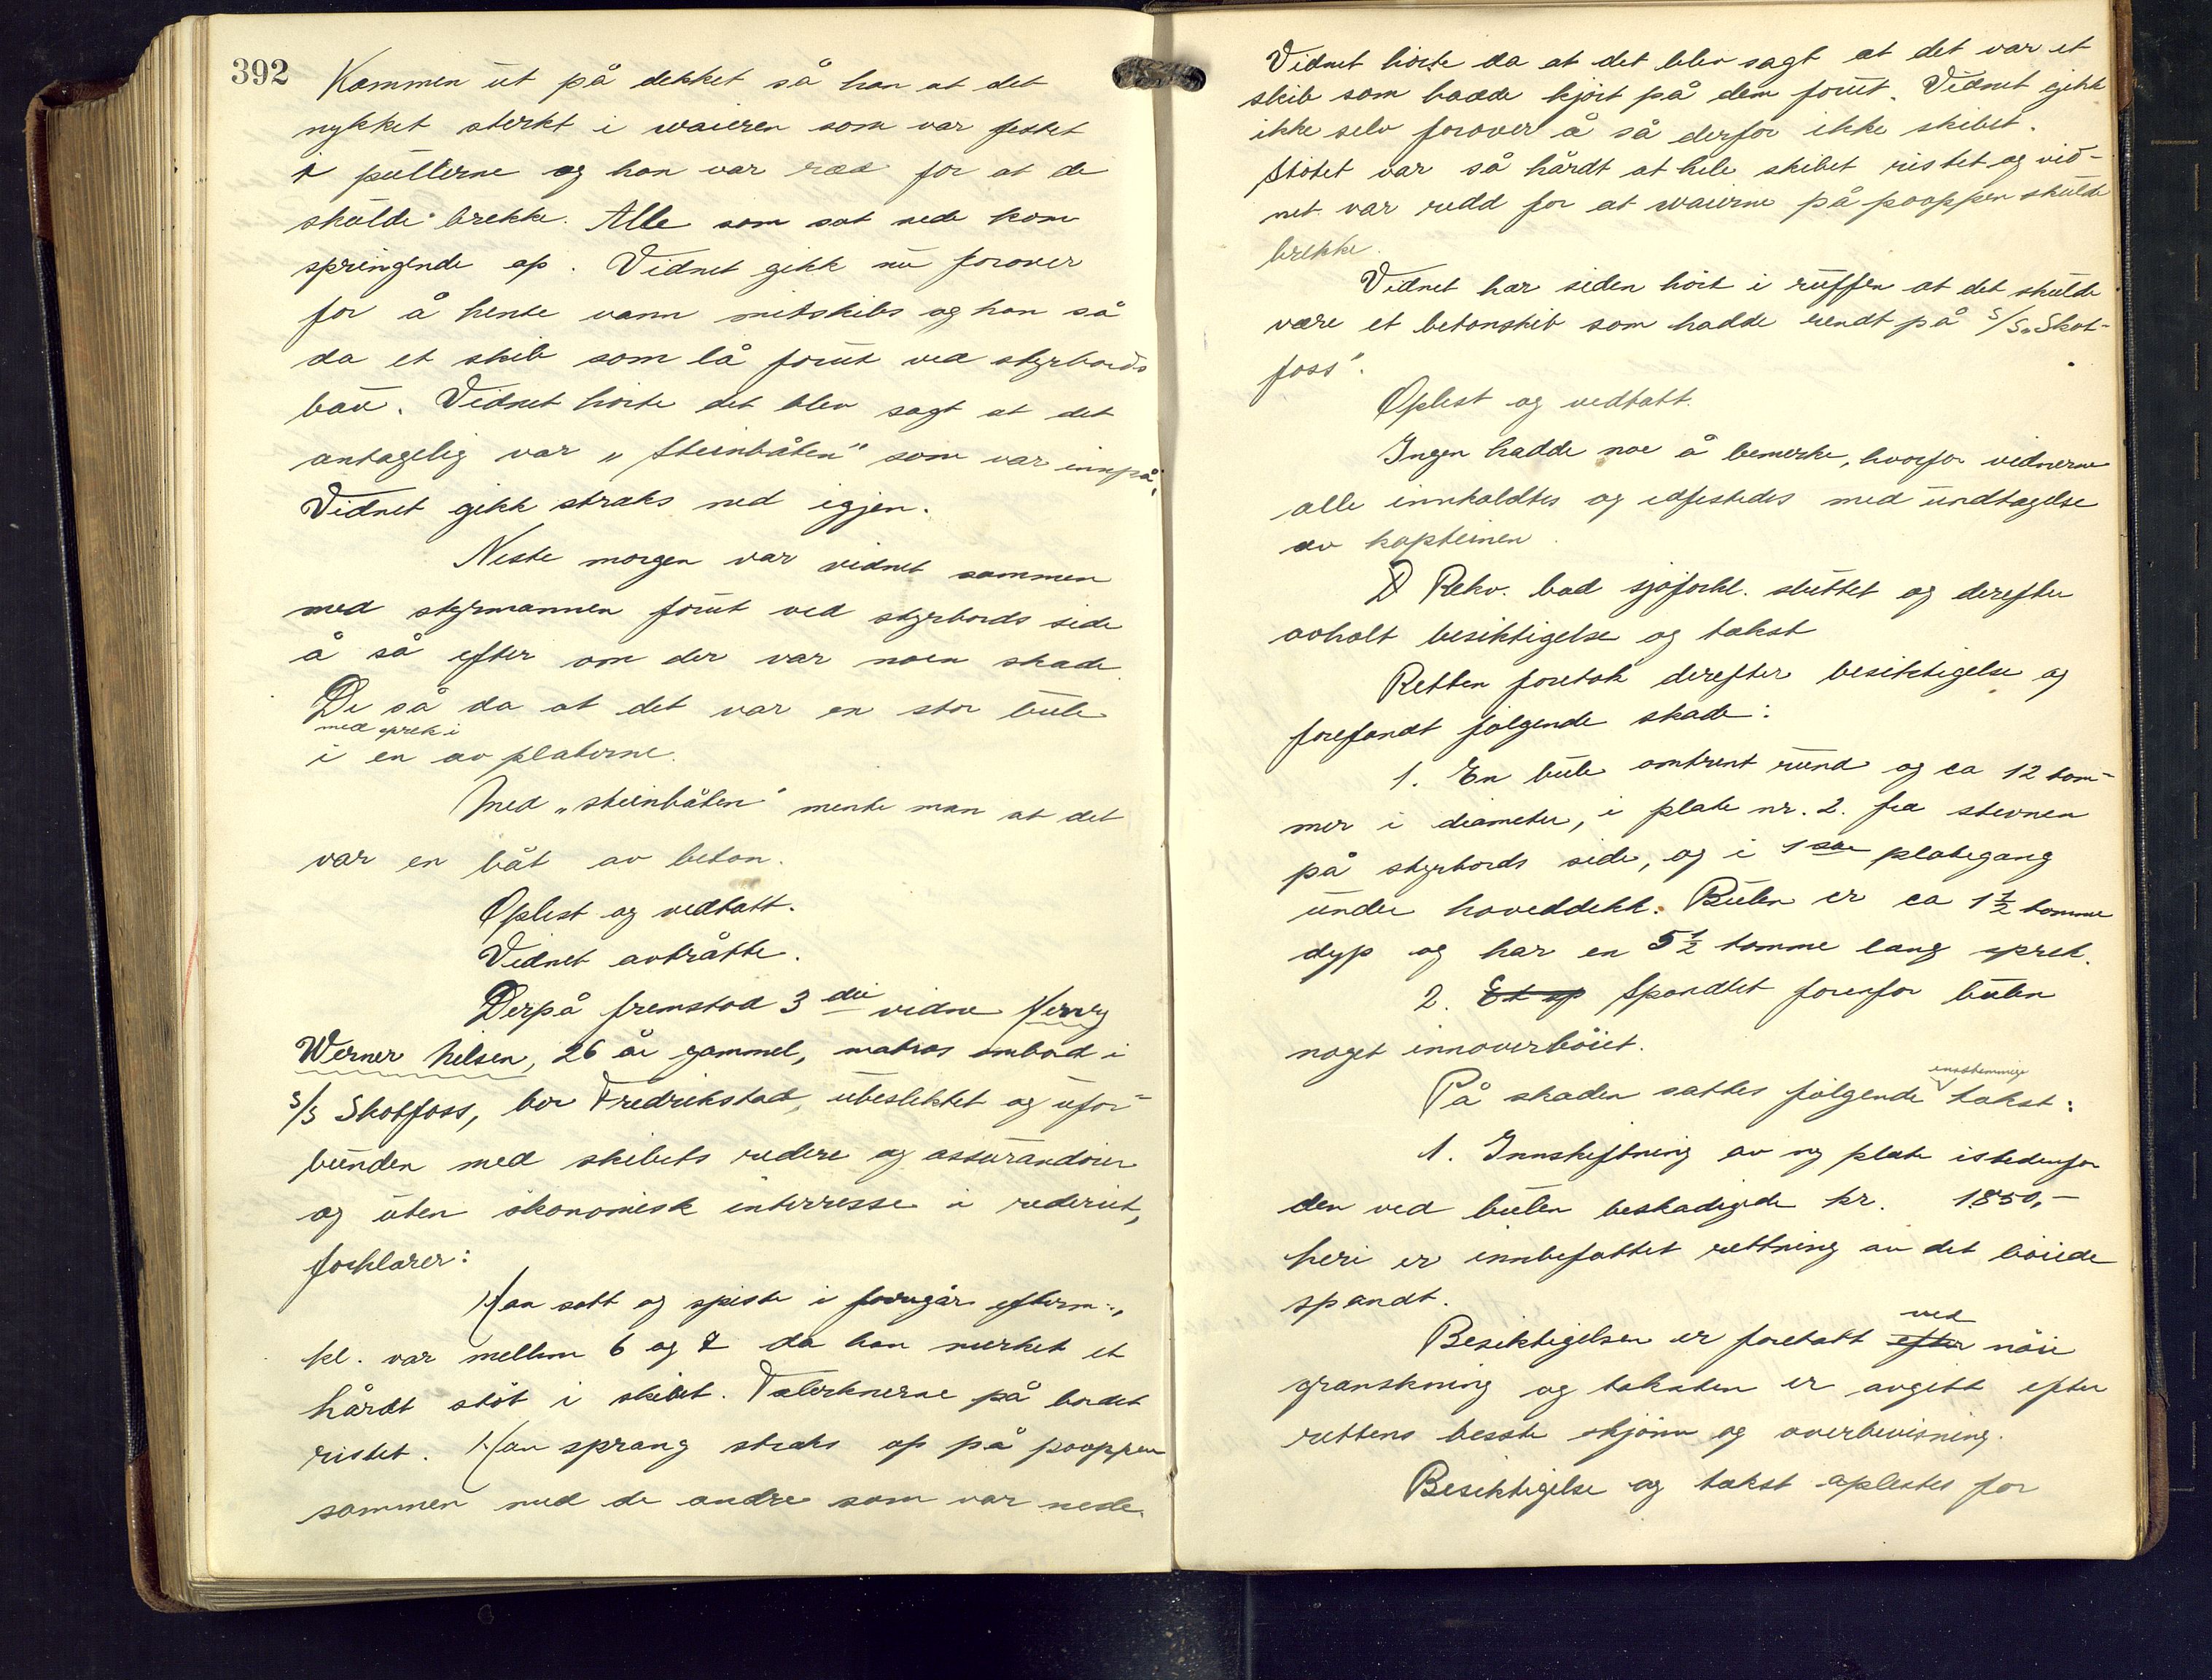 392
Kommen ut på dekket så han at det
nykket sterkt i waieren som var festet
i pullerne og han var ræd for at de
skulde brekke. Alle som sat nede kom
springende op. Vidnet gikk nu forover
for å hente vann mitskibs og han så
da et skib som lå forut ved styrbords
bau. Vidnet hörte det blev sagt at det
antagelig var "Steinbåten" som var innpå.
Vidnet gikk straks ned igjen.
Neste morgen var vidnet sammen
med styrmannen forut ved styrbords side
å så efter om der var noen skade.
De så da at det var en stor bule
med sprek i
i en av platerne.
Med "steinbåten" mente man at det
var en båt av beton.
Oplest og vedtatt.
Vidnet avtråtte.
Derpå fremstod 3die vidne
Werner Nilsen, 26 år gammel, matros ombord i
s/s Skotfoss, bor Fredrikstad, ubeslektet og ufor-
bunden med skibets redere og assurandörer
og uten ökonomisk interresse i rederiet,
forklarer:
Han satt og spiste i forrgårs efterm.,
kl. var mellem 6 og 7 da han merket et
hårdt stöt i skibet. Talerknerne på bordet
ristet. Han sprang straks op på pooppen
sammen med de andre som var nede.
Vidnet hörte da at det blev sagt at det var et
skib som hadde kjört på dem forut. Vidnet gikk
ikke selv forover å så derfor ikke skibet.
Stötet var så hårdt at hele skibet ristet og vid-
net var redd for at waierne på pooppen skulde
brekke.
Vidnet har siden hört i ruffen at det skulde
være et betonskib som hadde rendt på s/s "Skot-
foss".
Oplest og vedtatt.
Ingen hadde noe å bemerke, hvorfor vidnerne
alle innkaldtes og edfestedes med undtagelse
av kapteinen.
Rekv. bad sjöforkl. sluttet og derefter
avholt besiktigelse og takst
Retten foretok derefter besiktigelse og
forefandt fölgende skade:
1. En bule omtrent rund og ca 12 tom-
mer i diameter, i plate nr. 2. fra stevnen
på styrbords side, og i 1ste plategang
under hoveddekk. Bulen er ca 1½ tomme
dyp og har en 5½ tomme lang sprek.
2. Et sp Spandtet forenfor bulen
noget innoverböiet.
enstemmige
På skaden sattes fölgende takst:
1. Innskiftning av ny plate istedenfor
den ved bulen beskadigede kr. 1850,-
heri er innbefattet rettning av det böiede
spandt.
ved
Besiktigelsen er foretatt efter nöie
granskning og taksten er avgitt efter
rettens beste skjönn og overbevisning.
Besiktigelse og takst oplestes for